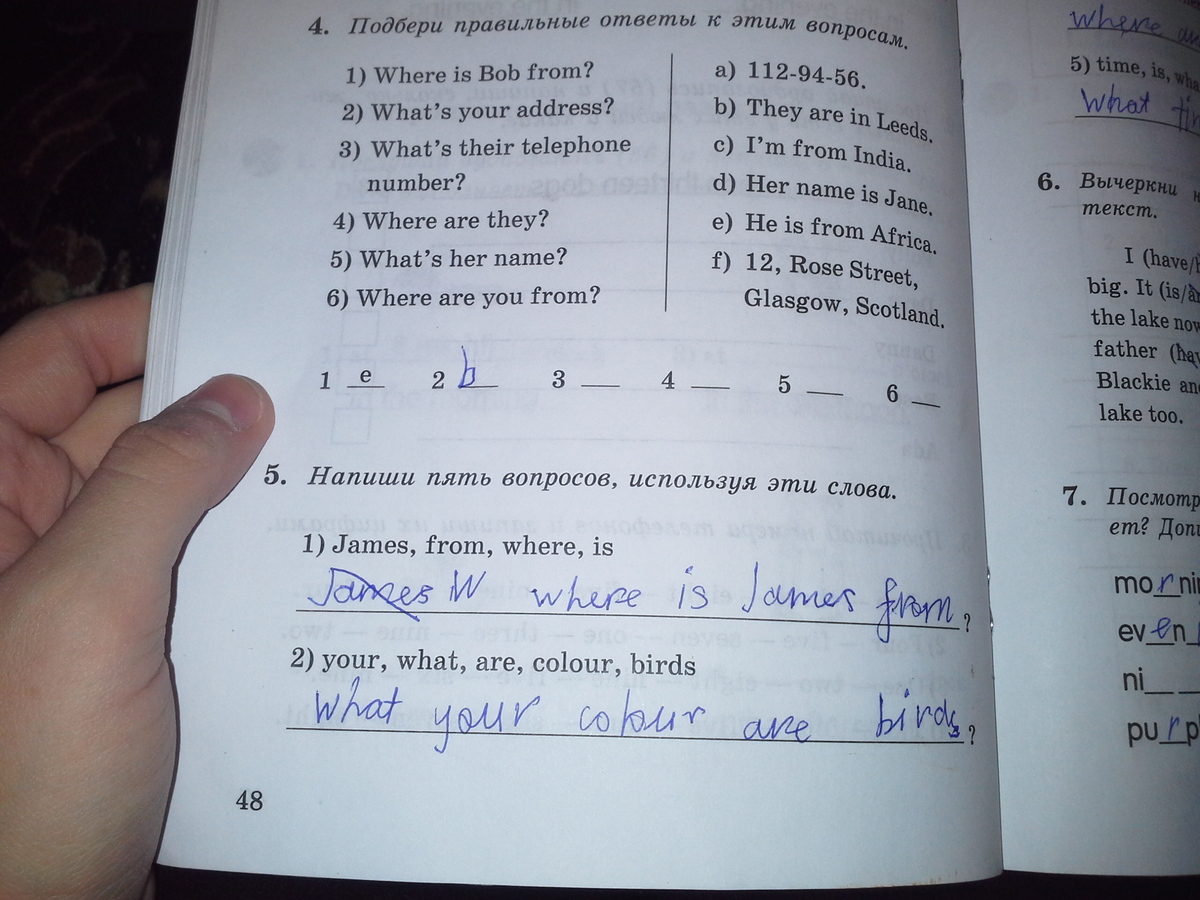 4. Подбери правильные ответы к этим вопросам.
1) Where is Bob from?
2) What's your address?
3) What's their telephone
number?
4) Where are they?
5) What's her name?
6) Where are you from?
a) 112-94-56.
b) They are in Leeds.
c) I'm from India.
d) Her name is Jane.
e) He is from Africa.
f) 12, Rose Street,
Glasgow, Scotland.
1 e 2 b 3 ___ 4 ___ 5 ___ 6 ___
5. Напиши пять вопросов, используя эти слова.
1) James, from, where, is
James W where is James from?
2) your, what, are, colour, birds
What your colour are birds?
48
where
5) time, is,
What
6. Вычеркни
текст.
I (have/
big. It (is/
the lake now
father
Blackie
lake too.
7.
ет?
mor
even
ni__
purp